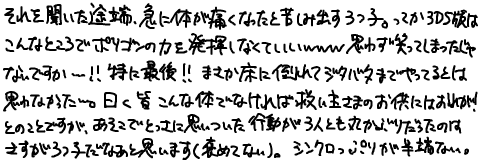 それを聞いた途端、急に体が痛くなったと苦しみ出す3つ子。ってか3DS版は
こんなところでポリゴンの力を発揮しなくていいwww 思わず笑ってしまったじゃ
ないですかー!! 特に最後!! まさか床に倒れてジタバタまでやってるとは
思わなかたー。曰く皆こんな体でなければ救い主さまのお供には
とのことですが、あそこでとっさに思いついた行動が3人とも丸かぶりだったのは
さすが3つ子だなあと思います(褒めてない)。シンクロっぷりが半端ない。